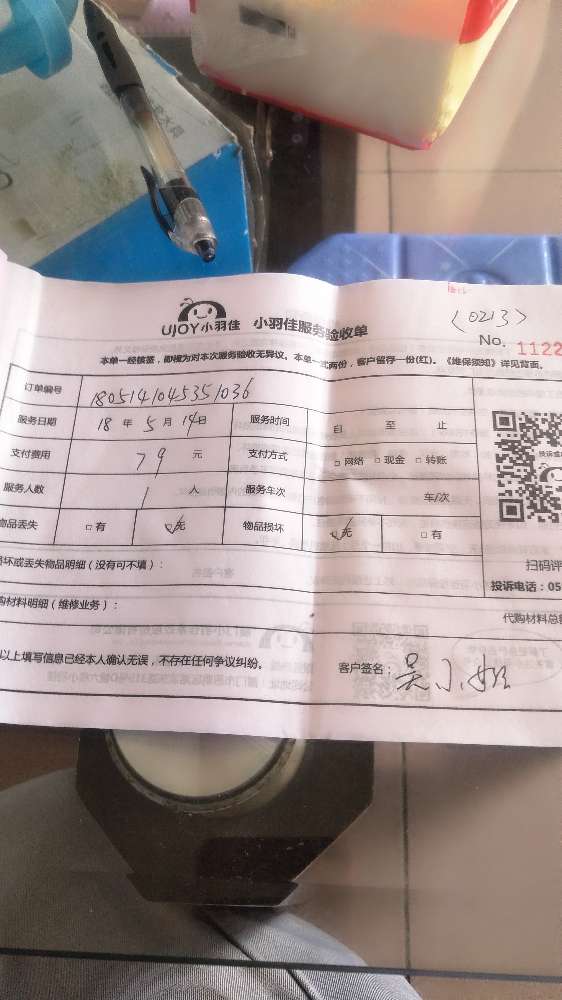 (0213)
UJOY小羽佳 小羽佳服务验收单
No. 1122
本单一经核签，即视为对本次服务验收无异议。本单一式两份，客户留存一份(红)。《维保须知》详见背面。
订单编号 1805141045351036
服务日期 18 年 5 月 14 日 服务时间 自 至 止
支付费用 79 元 支付方式 □ 网络 □ 现金 □ 转账
服务人数 1 人 服务车次 车/次
物品丢失 □ 有 ☑ 无 物品损坏 ☑ 无 □ 有
扫码评
损坏或丢失物品明细（没有可不填）：
投诉电话：05
购材料明细（维修业务）：
代购材料总额
以上填写信息已经本人确认无误，不存在任何争议纠纷。
客户签名：吴小姐